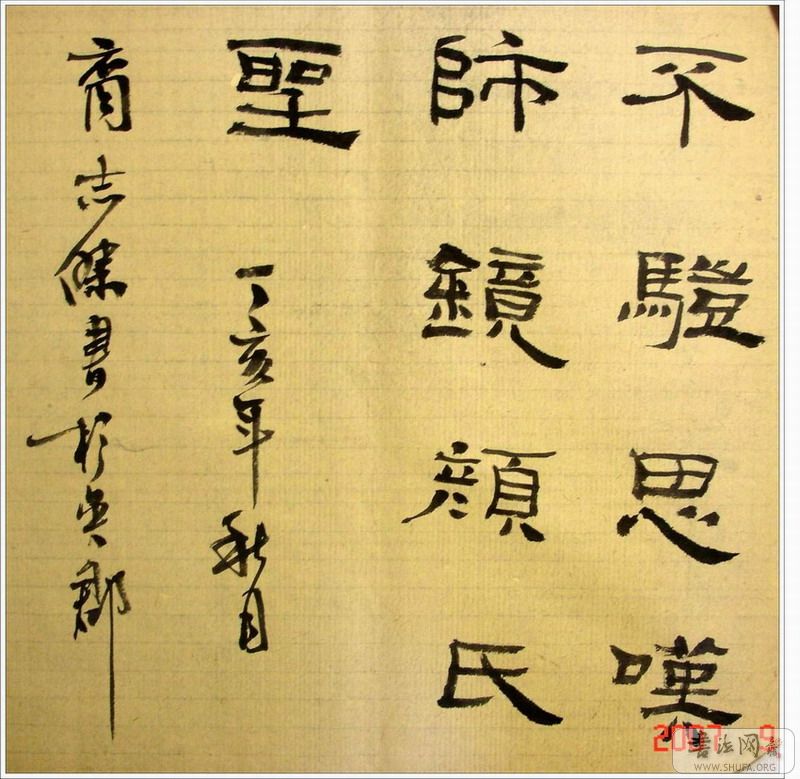 不思嘆
師鏡顏氏
聖
丁亥年秋月
商志傑書於吳郡
2007 9
书法网
WWW.SHUFA.ORG